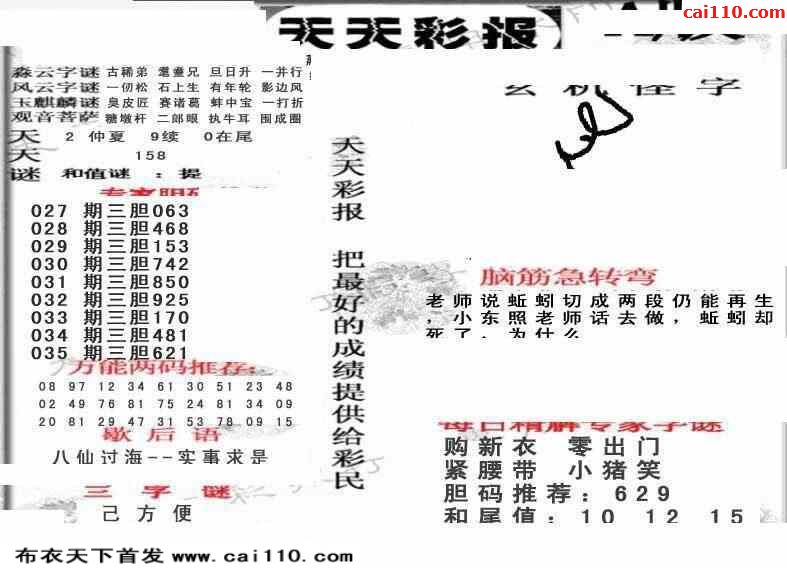 cai110.com
天天彩报
玄机怪字
淼云字谜 古稀弟 耄耋兄 旦日升 一井行
风云字谜 一仞松 石上生 有年轮 影边凤
玉麒麟谜 臭皮匠 赛诸葛 蚌中宝 一打折
观音菩萨 糖墩杆 二郎眼 执牛耳 围成圈
天 2 仲夏 9续 0在尾
天 158
谜 和值谜 : 提
027 期三胆063
028 期三胆468
029 期三胆153
030 期三胆742
031 期三胆850
032 期三胆925
033 期三胆170
034 期三胆481
035 期三胆621
万能两码推荐:
08 97 12 34 61 30 51 23 48
02 49 76 81 75 24 81 34 09
20 81 29 47 31 53 78 09 15
歇后语
八仙过海--实事求是
三字谜
己方便
天天彩报 把最好的成绩提供给彩民
脑筋急转弯
老师说蚯蚓切成两段仍能再生
，小东照老师话去做，蚯蚓却
死了，为什么
每日精解专家字谜
购新衣 零出门
紧腰带 小猪笑
胆码推荐: 629
和尾值: 10 12 15
布衣天下首发 www.cai110.com